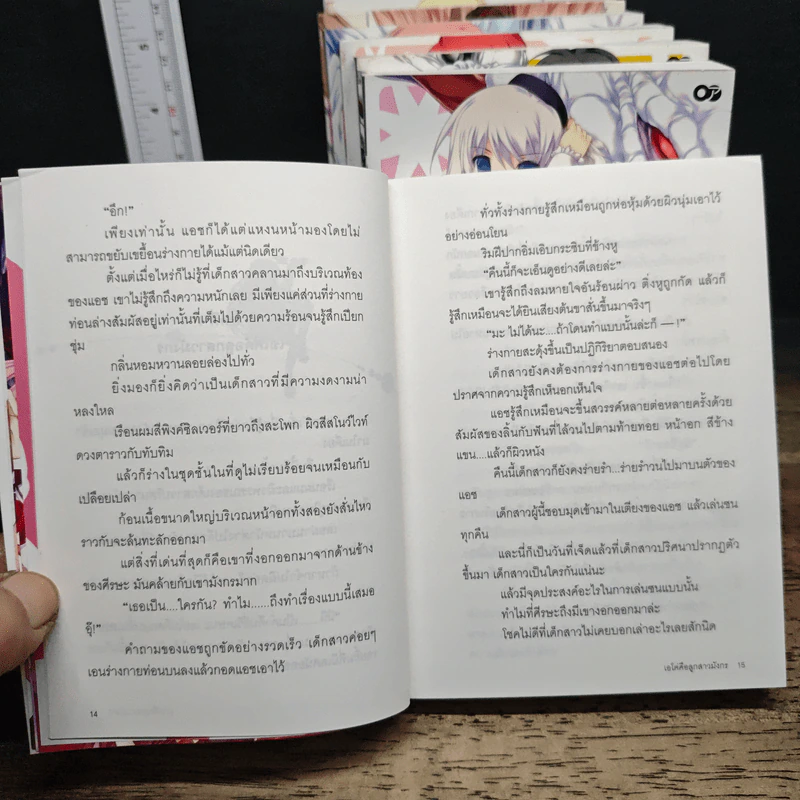 "อึก!"
เพียงเท่านั้น แอชก็ได้แต่แหงนหน้ามองโดยไม่
สามารถขยับเขยื้อนร่างกายได้แม้แต่นิดเดียว
ตั้งแต่เมื่อไหร่ก็ไม่รู้ที่เด็กสาวคลานมาถึงบริเวณท้อง
ของแอช เขาไม่รู้สึกถึงความหนักเลย มีเพียงแค่ส่วนที่ร่างกาย
ท่อนล่างสัมผัสอยู่เท่านั้นที่เต็มไปด้วยความร้อนจนรู้สึกเปียก
ชุ่ม
กลิ่นหอมหวานลอยล่องไปทั่ว
ยิ่งมองก็ยิ่งคิดว่าเป็นเด็กสาวที่มีความงดงามน่า
หลงใหล
เรือนผมสีพิงค์ซิลเวอร์ที่ยาวถึงสะโพก ผิวสีสโนว์ไวท์
ดวงตาราวกับทับทิม
แล้วก็ร่างในชุดชั้นในที่ดูไม่เรียบร้อยจนเหมือนกับ
เปลือยเปล่า
ก้อนเนื้อขนาดใหญ่บริเวณหน้าอกทั้งสองยังสั่นไหว
ราวกับจะล้นทะลักออกมา
แต่สิ่งที่เด่นที่สุดก็คือเขาที่งอกออกมาจากด้านข้าง
ของศีรษะ มันคล้ายกับเขามังกรมาก
"เธอเป็น....ใครกัน? ทำไม......ถึงทำเรื่องแบบนี้เสมอ
อุ๊!"
คำถามของแอชถูกขัดอย่างรวดเร็ว เด็กสาวค่อยๆ
เอนร่างกายท่อนบนลงแล้วกอดแอชเอาไว้
14
ทั่วทั้งร่างกายรู้สึกเหมือนถูกห่อหุ้มด้วยผิวนุ่มเอาไว้
อย่างอ่อนโยน
ริมฝีปากอิ่มเอิบกระซิบที่ข้างหู
"คืนนี้ก็จะเอ็นดูอย่างดีเลยล่ะ"
เขารู้สึกถึงลมหายใจอันร้อนผ่าว ติ่งหูถูกกัด แล้วก็
รู้สึกเหมือนจะได้ยินเสียงต้นขาสั่นขึ้นมาจริงๆ
"มะ ไม่ได้นะ....ถ้าโดนทำแบบนั้นล่ะก็ — !"
ร่างกายสะดุ้งขึ้นเป็นปฏิกิริยาตอบสนอง
เด็กสาวยังคงต้องการร่างกายของแอชต่อไปโดย
ปราศจากความรู้สึกเห็นอกเห็นใจ
แอชรู้สึกเหมือนจะขึ้นสวรรค์หลายต่อหลายครั้งด้วย
สัมผัสของลิ้นกับฟันที่ไล้วนไปตามท้ายทอย หน้าอก สีข้าง
แขน....แล้วก็ผิวหนัง
คืนนี้เด็กสาวก็ยังคงร่ายรำ...ร่ายรำวนไปมาบนตัวของ
แอช
เด็กสาวผู้นี้ชอบมุดเข้ามาในเตียงของแอช แล้วเล่นซน
ทุกคืน
และนี่ก็เป็นวันที่เจ็ดแล้วที่เด็กสาวปริศนาปรากฏตัว
ขึ้นมา เด็กสาวเป็นใครกันแน่นะ
แล้วมีจุดประสงค์อะไรในการเล่นซนแบบนั้น
ทำไมที่ศีรษะถึงมีเขางอกออกมาล่ะ
โชคไม่ดีที่เด็กสาวไม่เคยบอกเล่าอะไรเลยสักนิด
เอโค่คือลูกสาวมังกร 15